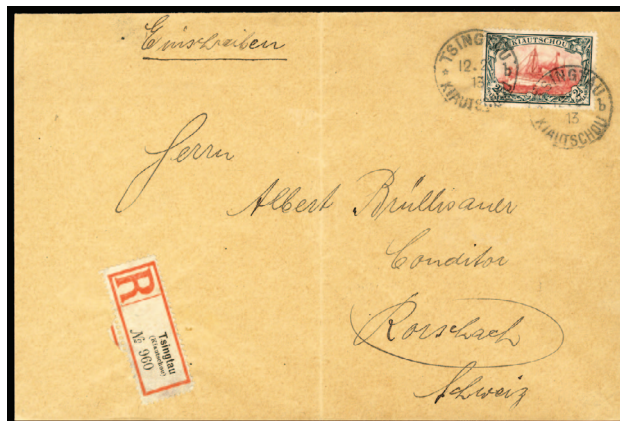 Einschreiben
KIAUTSCHOU
TSINGTAU
12.2
13
b
KIAUTSCHOU
TSINGTAU
b
13
KIAUTSCHOU
Herrn
Albert Brüllisauer
Conditor
Rorschach
Schweiz
R
Tsingtau
(Kiautschou)
№ 960